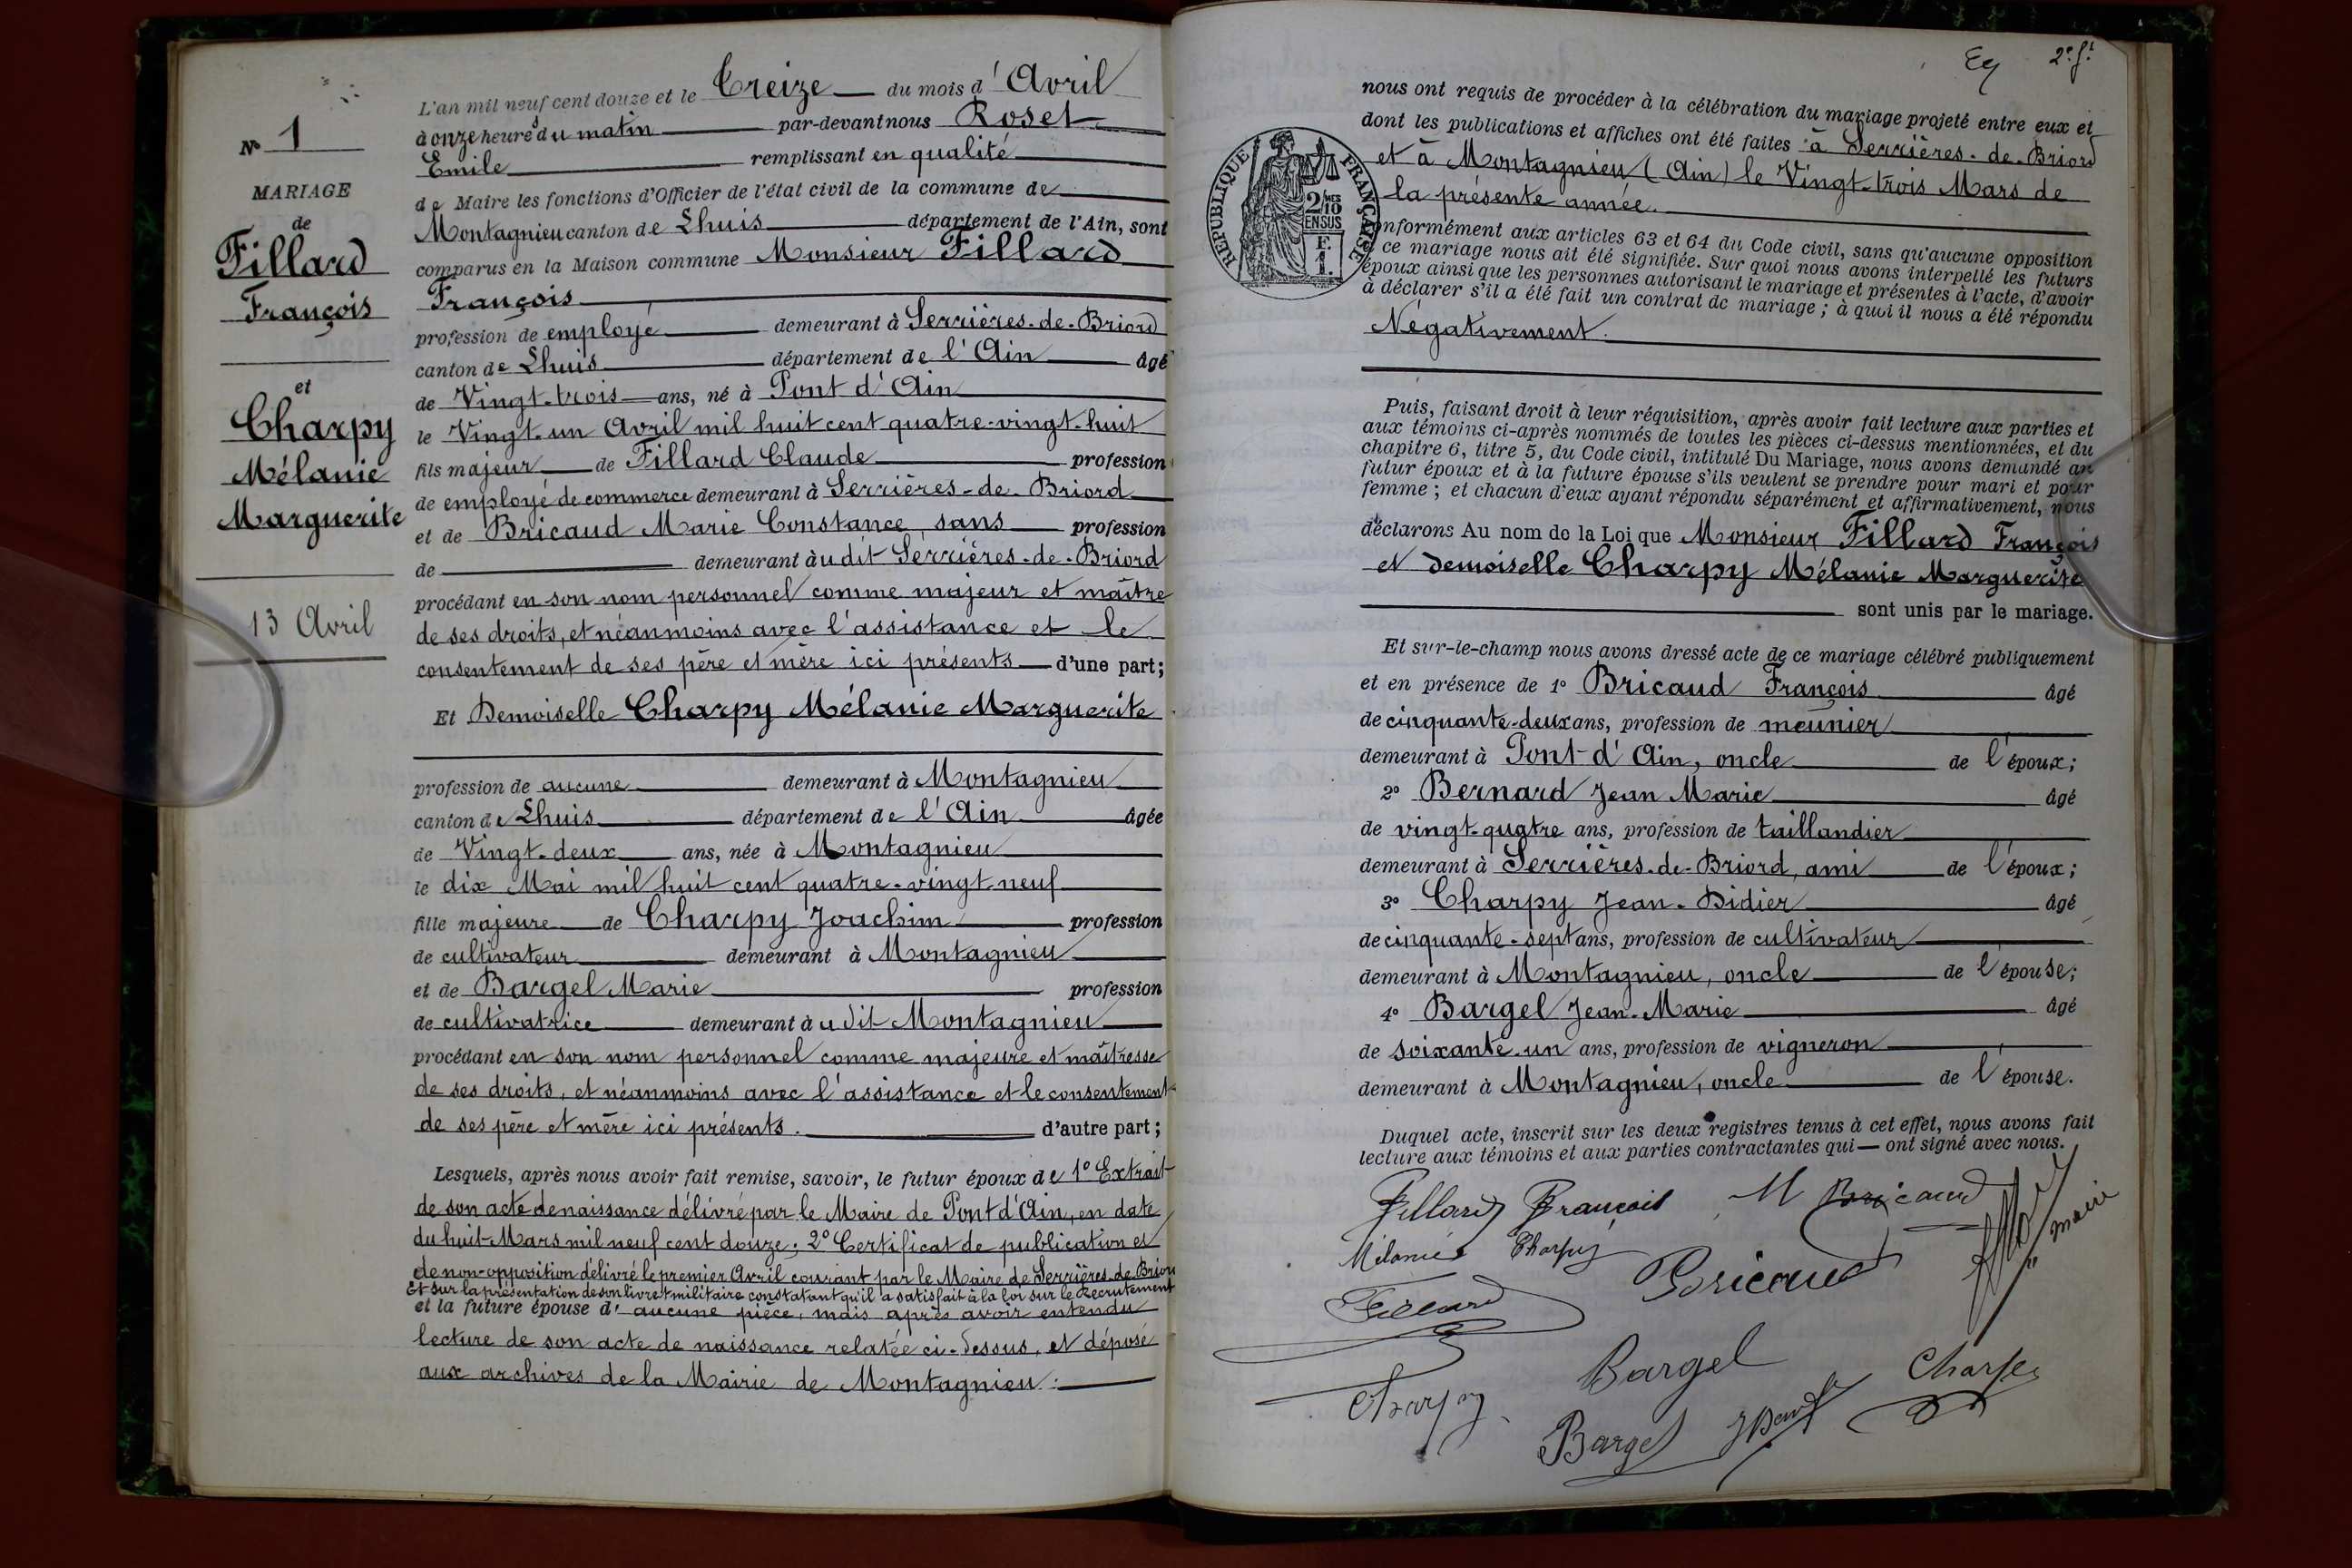 N° 1
MARIAGE
de
Fillard
François
et
Charpy
Mélanie
Marguerite
13 Avril
L'an mil neuf cent douze et le Treize du mois d'Avril
à onze heures du matin par-devant nous Roset
Emile remplissant en qualité
de Maire les fonctions d'Officier de l'état civil de la commune de
Montagnieu canton de Lhuis département de l'Ain, sont
comparus en la Maison commune Monsieur Fillard
François
profession de employé demeurant à Serrières-de-Briord
canton de Lhuis département de l'Ain âgé
de Vingt-trois ans, né à Pont d'Ain
le Vingt-un Avril mil huit cent quatre-vingt-huit
fils majeur de Fillard Claude profession
de employé de commerce demeurant à Serrières-de-Briord
et de Bricaud Marie Constance, sans profession
de demeurant àudit Serrières-de-Briord
procédant en son nom personnel comme majeur et maître
de ses droits, et néanmoins avec l'assistance et le
consentement de ses père et mère ici présents d'une part;
Et Demoiselle Charpy Mélanie Marguerite
profession de aucune demeurant à Montagnieu
canton de Lhuis département de l'Ain âgée
de Vingt-deux ans, née à Montagnieu
le dix Mai mil huit cent quatre-vingt-neuf
fille majeure de Charpy Joachim profession
de cultivateur demeurant à Montagnieu
et de Bargel Marie profession
de cultivatrice demeurant àudit Montagnieu
procédant en son nom personnel comme majeure et maîtresse
de ses droits, et néanmoins avec l'assistance et le consentement
de ses père et mère ici présents. d'autre part;
Lesquels, après nous avoir fait remise, savoir, le futur époux de 1° Extrait
de son acte de naissance délivré par le Maire de Pont d'Ain, en date
du huit Mars mil neuf cent douze; 2° Certificat de publication et
de non-opposition délivré le premier Avril courant par le Maire de Serrières-de-Brior
Et sur la présentation de son livret militaire constatant qu'il a satisfait à la loi sur le Recrutement
et la future épouse d'aucune pièce, mais après avoir entendu
lecture de son acte de naissance relatée ci-dessus, et déposé
aux archives de la Mairie de Montagnieu.
2e ft
nous ont requis de procéder à la célébration du mariage projeté entre eux et
dont les publications et affiches ont été faites à Serrières-de-Briord
et à Montagnieu (Ain) le Vingt-trois Mars de
la présente année.
REPUBLIQUE FRANÇAISE
2/10 MES
EN SUS
F.
1.
onformément aux articles 63 et 64 du Code civil, sans qu'aucune opposition
ce mariage nous ait été signifiée. Sur quoi nous avons interpellé les futurs
époux ainsi que les personnes autorisant le mariage et présentes à l'acte, d'avoir
à déclarer s'il a été fait un contrat de mariage; à quoi il nous a été répondu
Négativement.
Puis, faisant droit à leur réquisition, après avoir fait lecture aux parties et
aux témoins ci-après nommés de toutes les pièces ci-dessus mentionnées, et du
chapitre 6, titre 5, du Code civil, intitulé Du Mariage, nous avons demandé au
futur époux et à la future épouse s'ils veulent se prendre pour mari et pour
femme; et chacun d'eux ayant répondu séparément et affirmativement, nous
déclarons Au nom de la Loi que Monsieur Fillard François
et Demoiselle Charpy Mélanie Marguerite
sont unis par le mariage.
Et sur-le-champ nous avons dressé acte de ce mariage célébré publiquement
et en présence de 1° Bricaud François âgé
de cinquante-deux ans, profession de meunier
demeurant à Pont-d'Ain, oncle de l'époux;
2° Bernard Jean Marie âgé
de vingt-quatre ans, profession de taillandier
demeurant à Serrières-de-Briord, ami de l'époux;
3° Charpy Jean-Didier âgé
de cinquante-sept ans, profession de cultivateur
demeurant à Montagnieu, oncle de l'épouse;
4° Bargel Jean-Marie âgé
de soixante-un ans, profession de vigneron
demeurant à Montagnieu, oncle de l'épouse.
Duquel acte, inscrit sur les deux registres tenus à cet effet, nous avons fait
lecture aux témoins et aux parties contractantes qui ont signé avec nous.
Fillard François M Bricaud
Mélanie Charpy maire
Fillard Bricaud
Charpy Bargel Charpy
Bargel